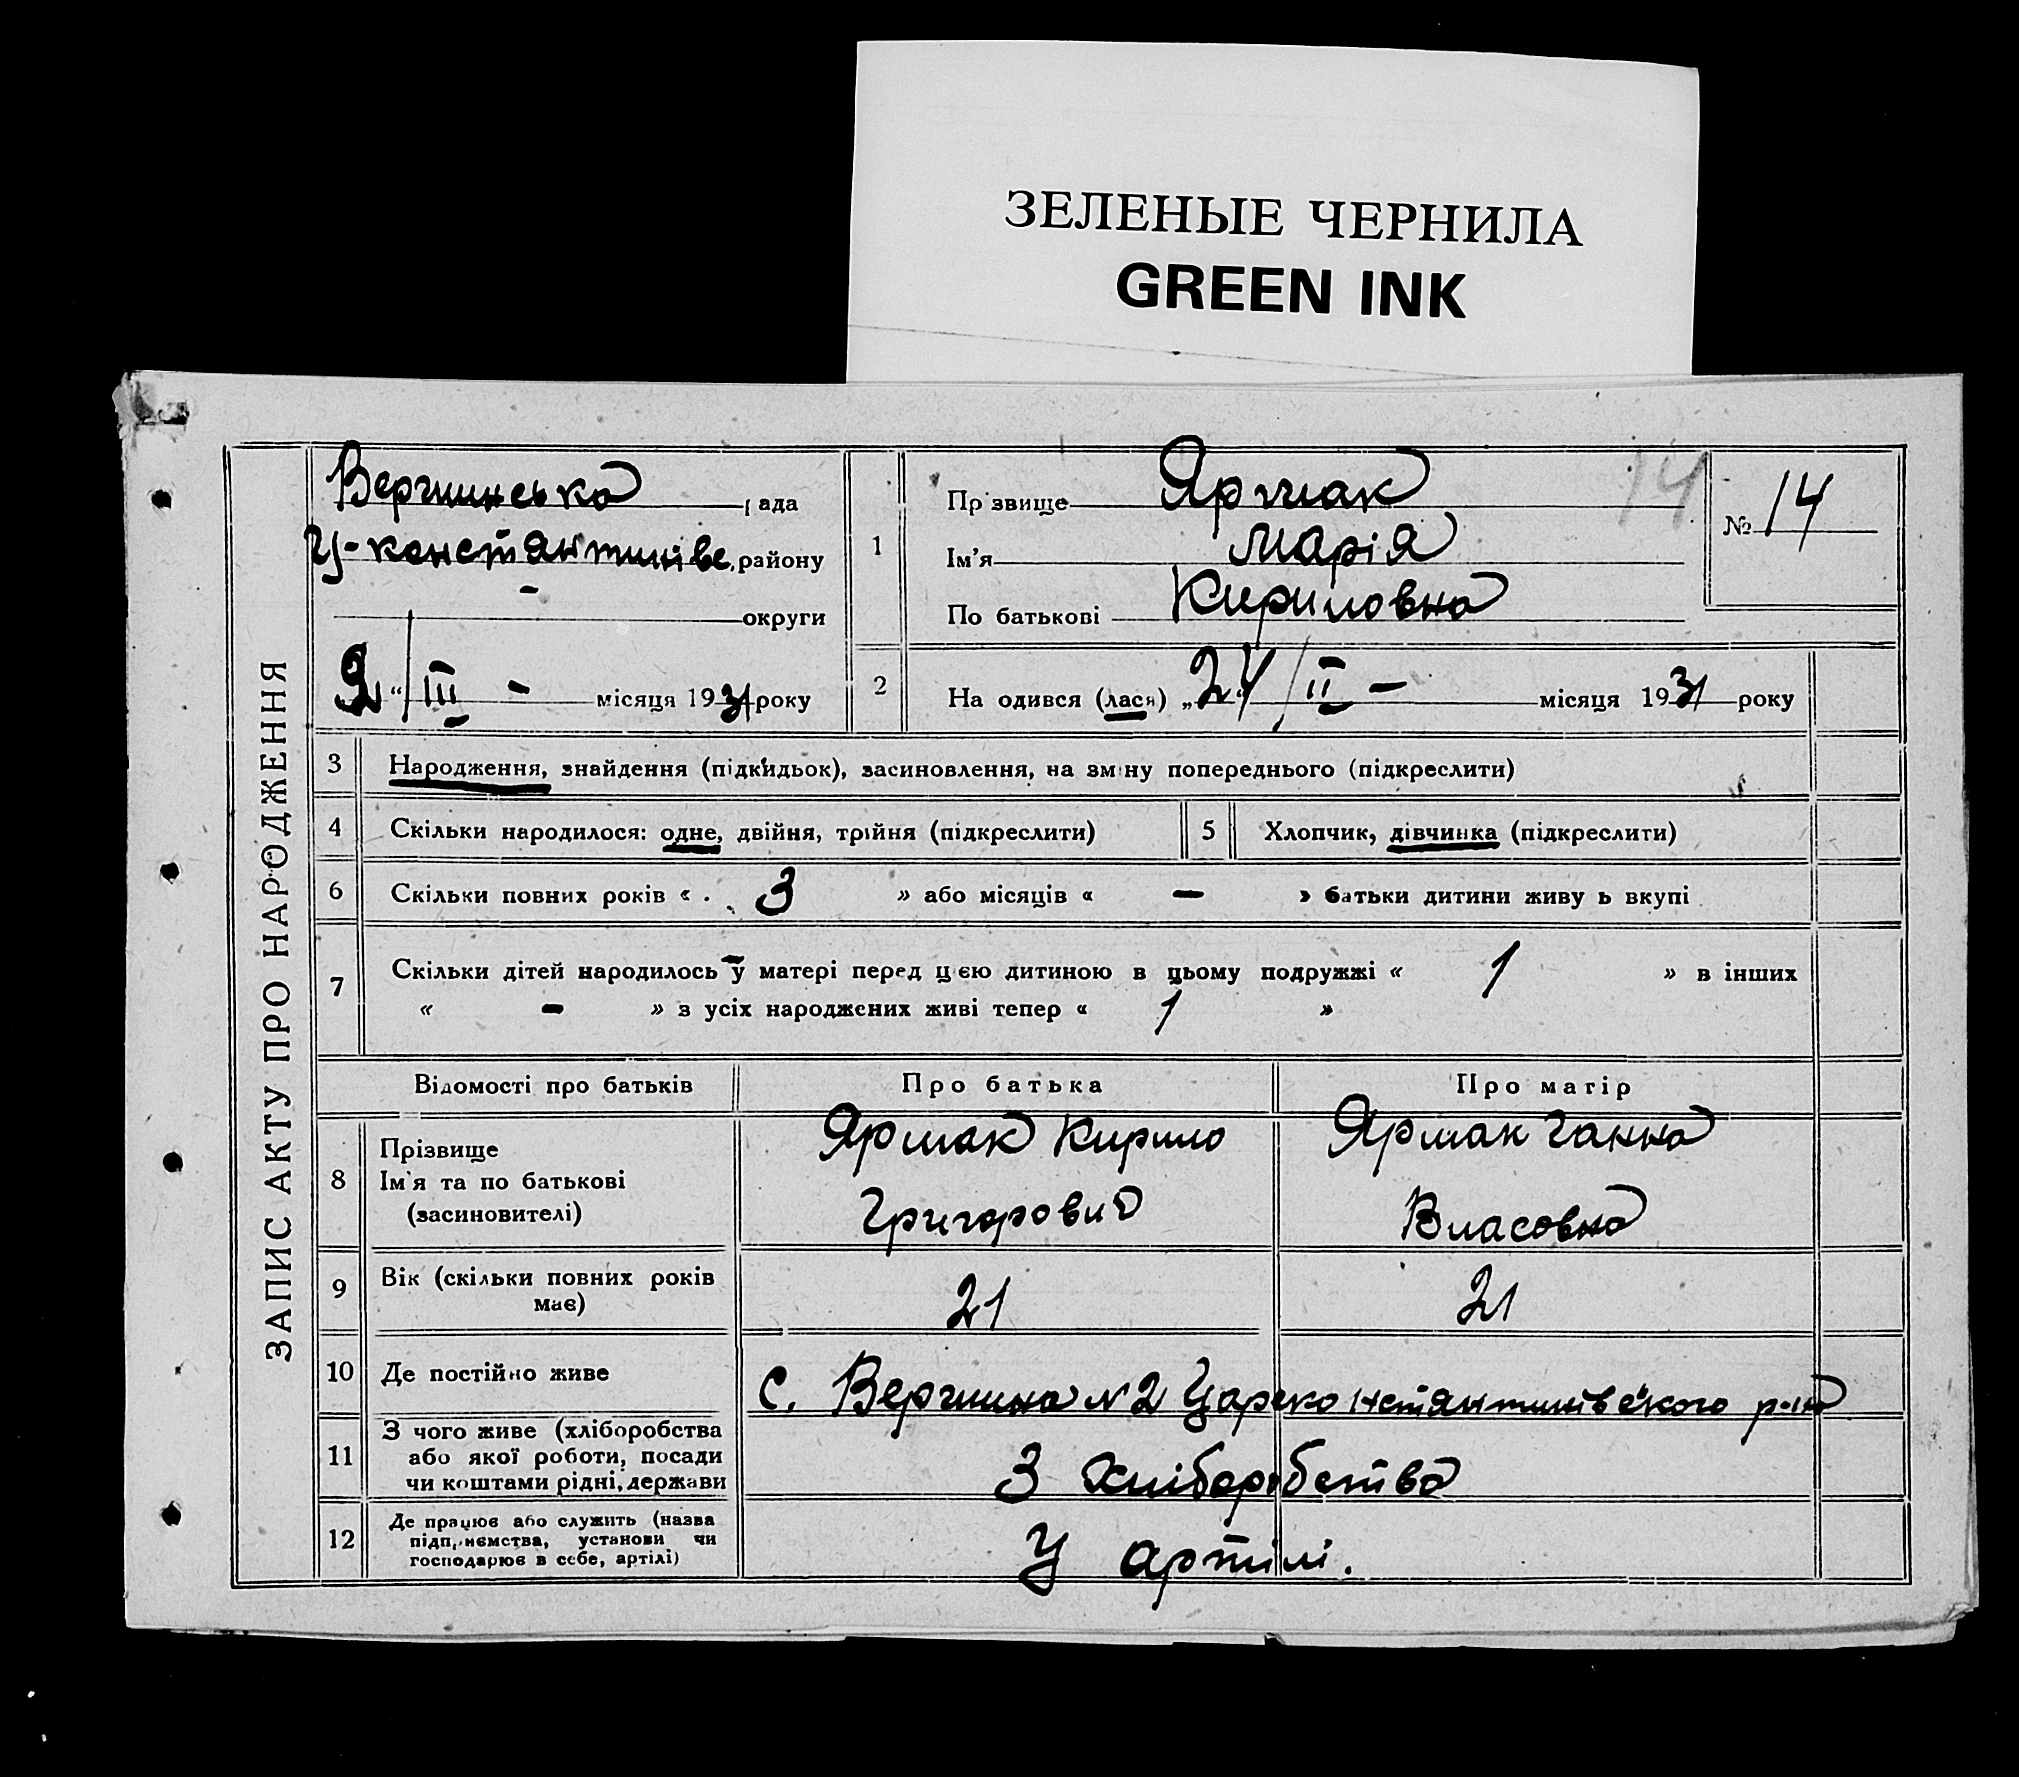 ЗЕЛЕНЫЕ ЧЕРНИЛА
GREEN INK
ЗАПИС АКТУ ПРО НАРОДЖЕННЯ
Вершинська рада
Ц-констянтинівс. району
- округи
2 “ III - місяця 1931 року
1
Прізвище Ярмак 14
Ім’я Марія
По батькові Кириловна
№ 14
2 На одився (лася) „24 / II - місяця 1931 року
3 Народження, знайдення (підкидьок), засиновлення, на зміну попереднього (підкреслити)
4 Скільки народилося: одне, двійня, трійня (підкреслити)
5 Хлопчик, дівчинка (підкреслити)
6 Скільки повних років « 3 » або місяців « - » батьки дитини живу ь вкупі
7 Скільки дітей народилось у матері перед цією дитиною в цьому подружжі « 1 » в інших
« - » з усіх народжених живі тепер « 1 »
Відомості про батьків Про батька Про матір
8 Прізвище
Ім’я та по батькові
(засиновителі)
Ярмак Кирило
Григорович
Ярмак Ганна
Власовна
9 Вік (скільки повних років
має)
21 21
10 Де постійно живе с. Вершина N2 Царекон­стянтинівського р-на
11 З чого живе (хліборобства
або якої роботи, посади
чи коштами рідні, держави
З хліборобства
12 Де працює або служить (назва
підприємства, установи чи
господарює в себе, артілі)
У артілі.